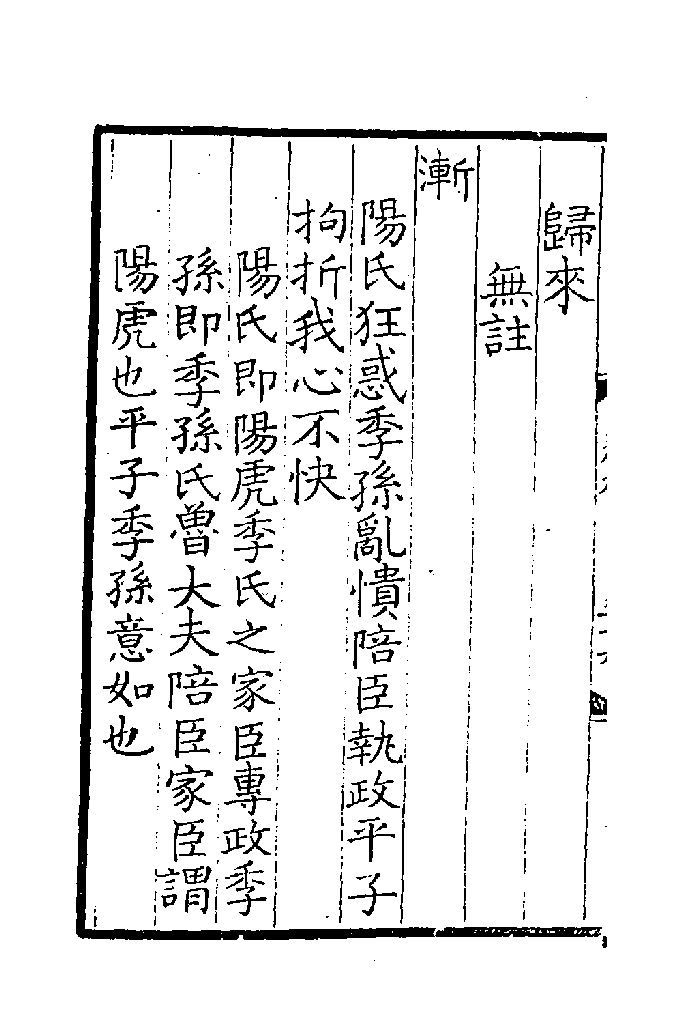 歸來
無註
漸
陽氏狂惑季孫亂憒陪臣執政平子
拘折我心不快
陽氏即陽虎季氏之家臣專政季
孫即季孫氏魯大夫陪臣家臣謂
陽虎也平子季孫意如也